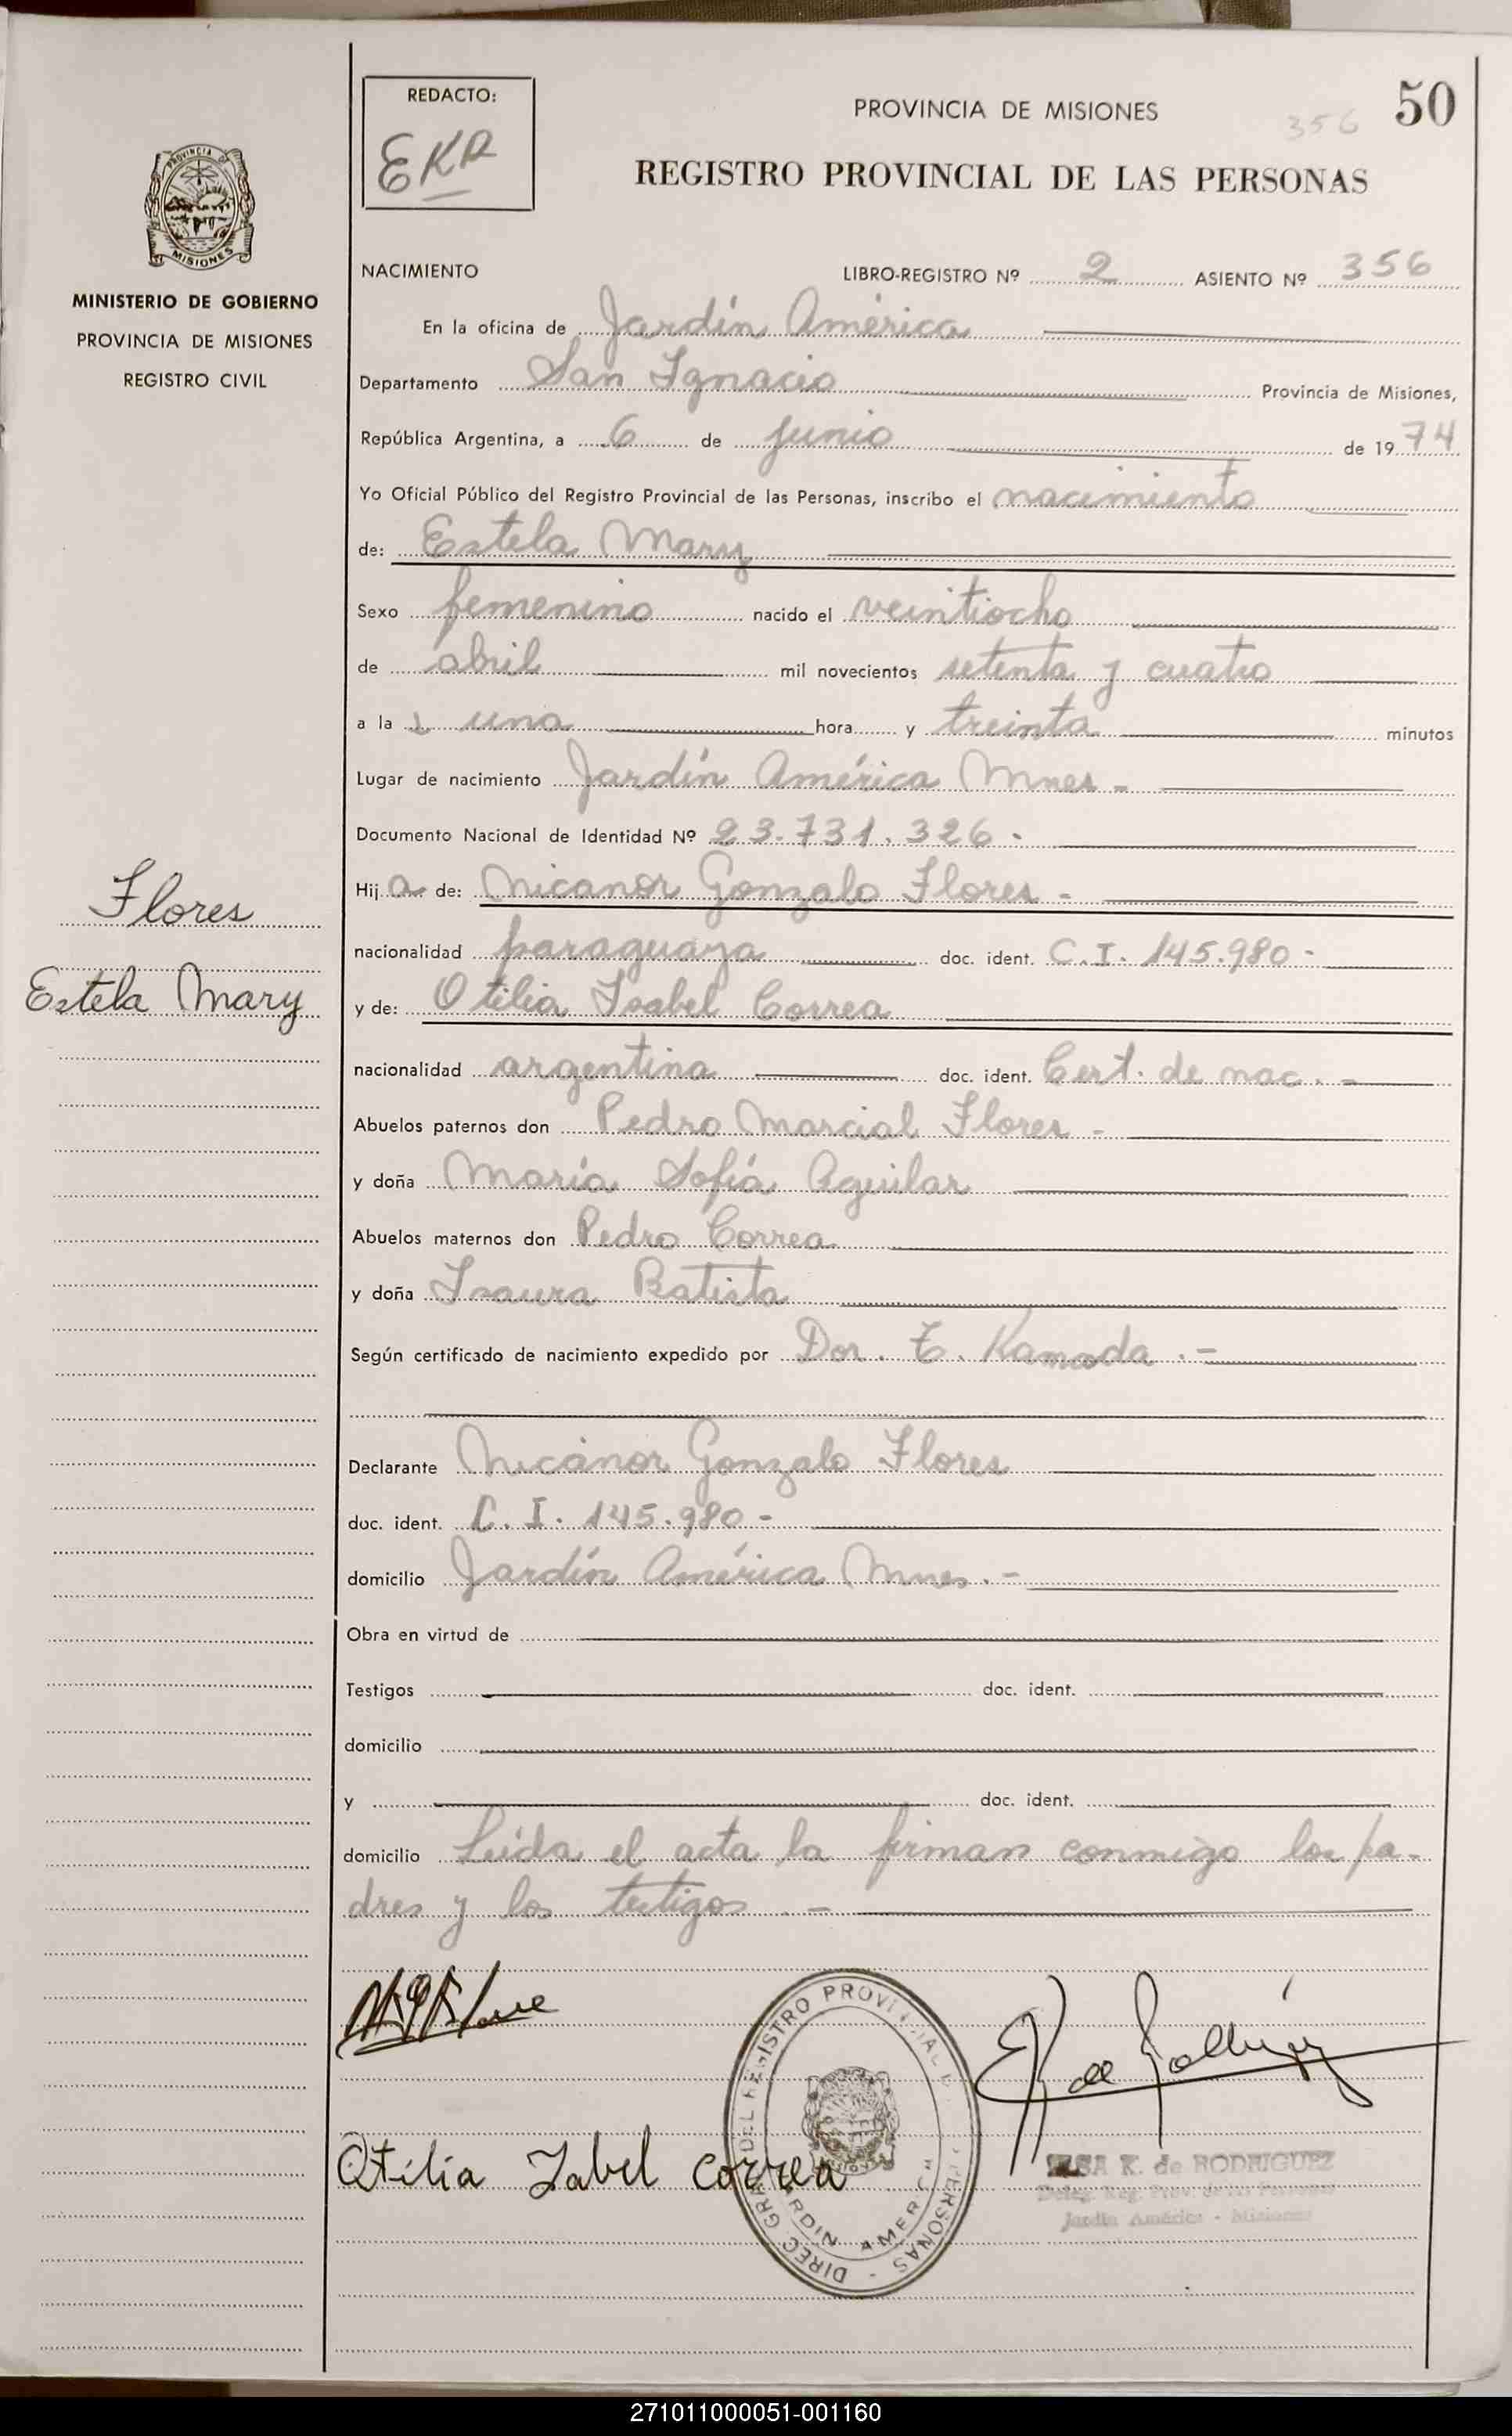 REDACTO:
EKR
PROVINCIA DE MISIONES
356
50
REGISTRO PROVINCIAL DE LAS PERSONAS
PROVINCIA DE
MISIONES
MINISTERIO DE GOBIERNO
PROVINCIA DE MISIONES
REGISTRO CIVIL
NACIMIENTO LIBRO-REGISTRO Nº 2 ASIENTO Nº 356
En la oficina de Jardín América
Departamento San Ignacio Provincia de Misiones,
República Argentina, a 6 de junio de 1974
Yo Oficial Público del Registro Provincial de las Personas, inscribo el nacimiento
de: Estela Mary
Sexo femenino nacido el veintiocho
de abril mil novecientos setenta y cuatro
a la una hora y treinta minutos
Lugar de nacimiento Jardín América Mnes -
Documento Nacional de Identidad Nº 23.731.326.
Flores
Estela Mary
Hija de: Nicanor Gonzalo Flores -
nacionalidad paraguaya doc. ident. C.I. 145.980 -
y de: Otilia Isabel Correa
nacionalidad argentina doc. ident. Cert. de nac. -
Abuelos paternos don Pedro Marcial Flores -
y doña María Sofía Aguilar
Abuelos maternos don Pedro Correa
y doña Isaura Batista
Según certificado de nacimiento expedido por Dor. T. Kamada .-
Declarante Nicanor Gonzalo Flores
doc. ident. C. I. 145.980 -
domicilio Jardín América Mnes. -
Obra en virtud de
Testigos doc. ident.
domicilio
y doc. ident.
domicilio Leída el acta la firman conmigo los pa-
dres y los testigos . -
DIREC. GRAL. DEL REGISTRO PROVINCIAL DE PERSONAS -
JARDIN AMERICA
Otilia Isabel Correa
ELSA K. de RODRIGUEZ
Deleg. Reg. Prov. de las Personas
Jardín América - Misiones
271011000051-001160